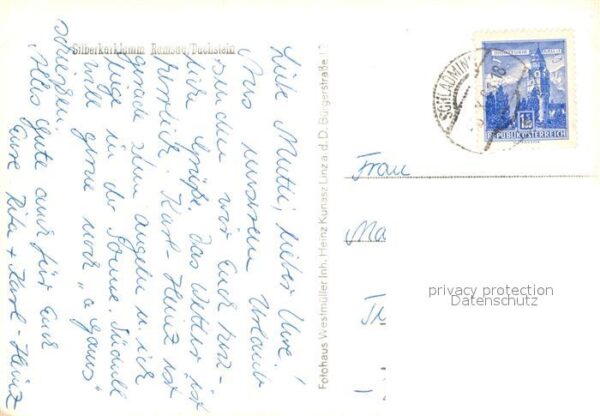 Silberkarklamm Ramsau/Dachstein
Liebe Mutti, lieber Uwe!
Aus unserem Urlaub
senden wir Euch herz-
liche Grüße. Das Wetter ist
herrlich. Karl-Heinz ist
gerade zum angeln u. ich
liege in der Sonne.
will gerne noch "a Gams"
schießen.
Alles Gute auch für Euch
Eure Rita + Karl-Heinz
Fotohaus Westmüller Inh. Heinz Kunasz Linz a. d. D. Bürgerstraße 13
SCHLADMING
REPUBLIK ÖSTERREICH
Frau
Ma
Tr
privacy protection
Datenschutz